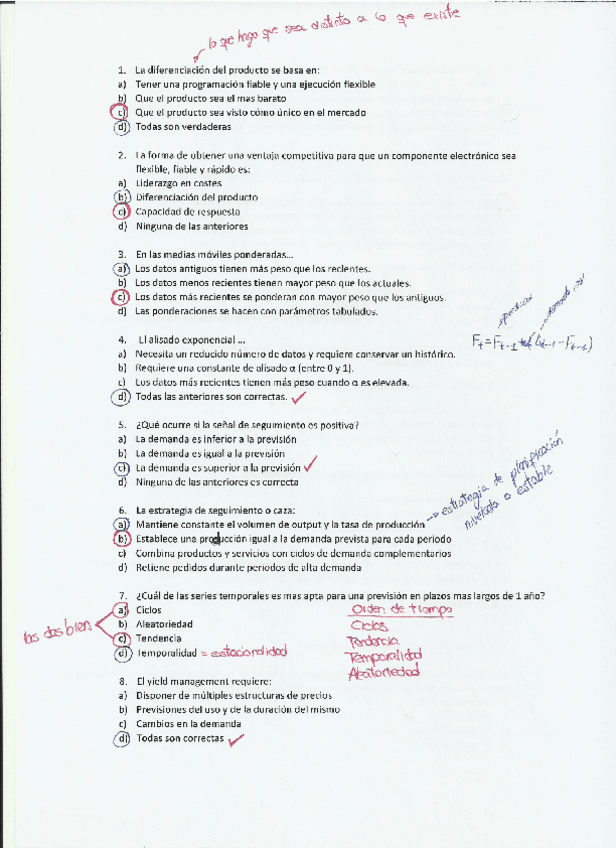 lo que hago que sea distinto a lo que existe
1. La diferenciación del producto se basa en:
a) Tener una programación fiable y una ejecución flexible
b) Que el producto sea el mas barato
c) Que el producto sea visto cómo único en el mercado
d) Todas son verdaderas
2. La forma de obtener una ventaja competitiva para que un componente electrónico sea
flexible, fiable y rápido es:
a) Liderazgo en costes
b) Diferenciación del producto
c) Capacidad de respuesta
d) Ninguna de las anteriores
3. En las medias móviles ponderadas...
a) Los datos antiguos tienen más peso que los recientes.
b) Los datos menos recientes tienen mayor peso que los actuales.
c) Los datos más recientes se ponderan con mayor peso que los antiguos.
d) Las ponderaciones se hacen con parámetros tabulados.
4. El alisado exponencial ...
a) Necesita un reducido número de datos y requiere conservar un histórico.
b) Requiere una constante de alisado α (entre 0 y 1).
c) Los datos más recientes tienen más peso cuando α es elevada.
d) Todas las anteriores son correctas.
5. ¿Qué ocurre si la señal de seguimiento es positiva?
a) La demanda es inferior a la previsión
b) La demanda es igual a la previsión
c) La demanda es superior a la previsión
d) Ninguna de las anteriores es correcta
estrategia de planificación
nivelada o estable
6. La estrategia de seguimiento o caza:
a) Mantiene constante el volumen de output y la tasa de producción
b) Establece una producción igual a la demanda prevista para cada periodo
c) Combina productos y servicios con ciclos de demanda complementarios
d) Retiene pedidos durante periodos de alta demanda
7. ¿Cuál de las series temporales es mas apta para una previsión en plazos mas largos de 1 año?
a) Ciclos
b) Aleatoriedad
c) Tendencia
d) Temporalidad = estacionalidad
los dos bien
Orden de tiempo
Ciclos
Tendencia
Temporalidad
Aleatoriedad
8. El yield management requiere:
a) Disponer de múltiples estructuras de precios
b) Previsiones del uso y de la duración del mismo
c) Cambios en la demanda
d) Todas son correctas